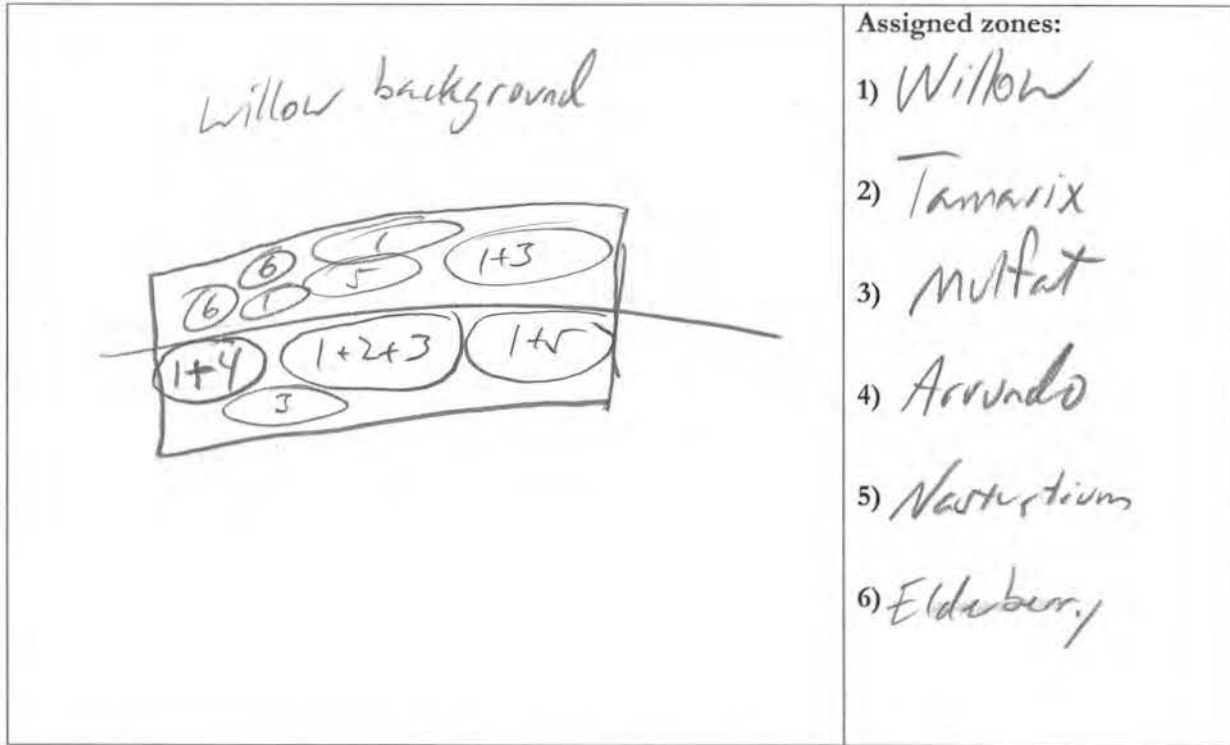 Willow background
6
1
1+3
6
1
5
1+4
1+2+3
1+5
3
Assigned zones:
1) Willow
2) Tamarix
3) Mulfat
4) Arrundo
5) Nasturtium
6) Elderberry